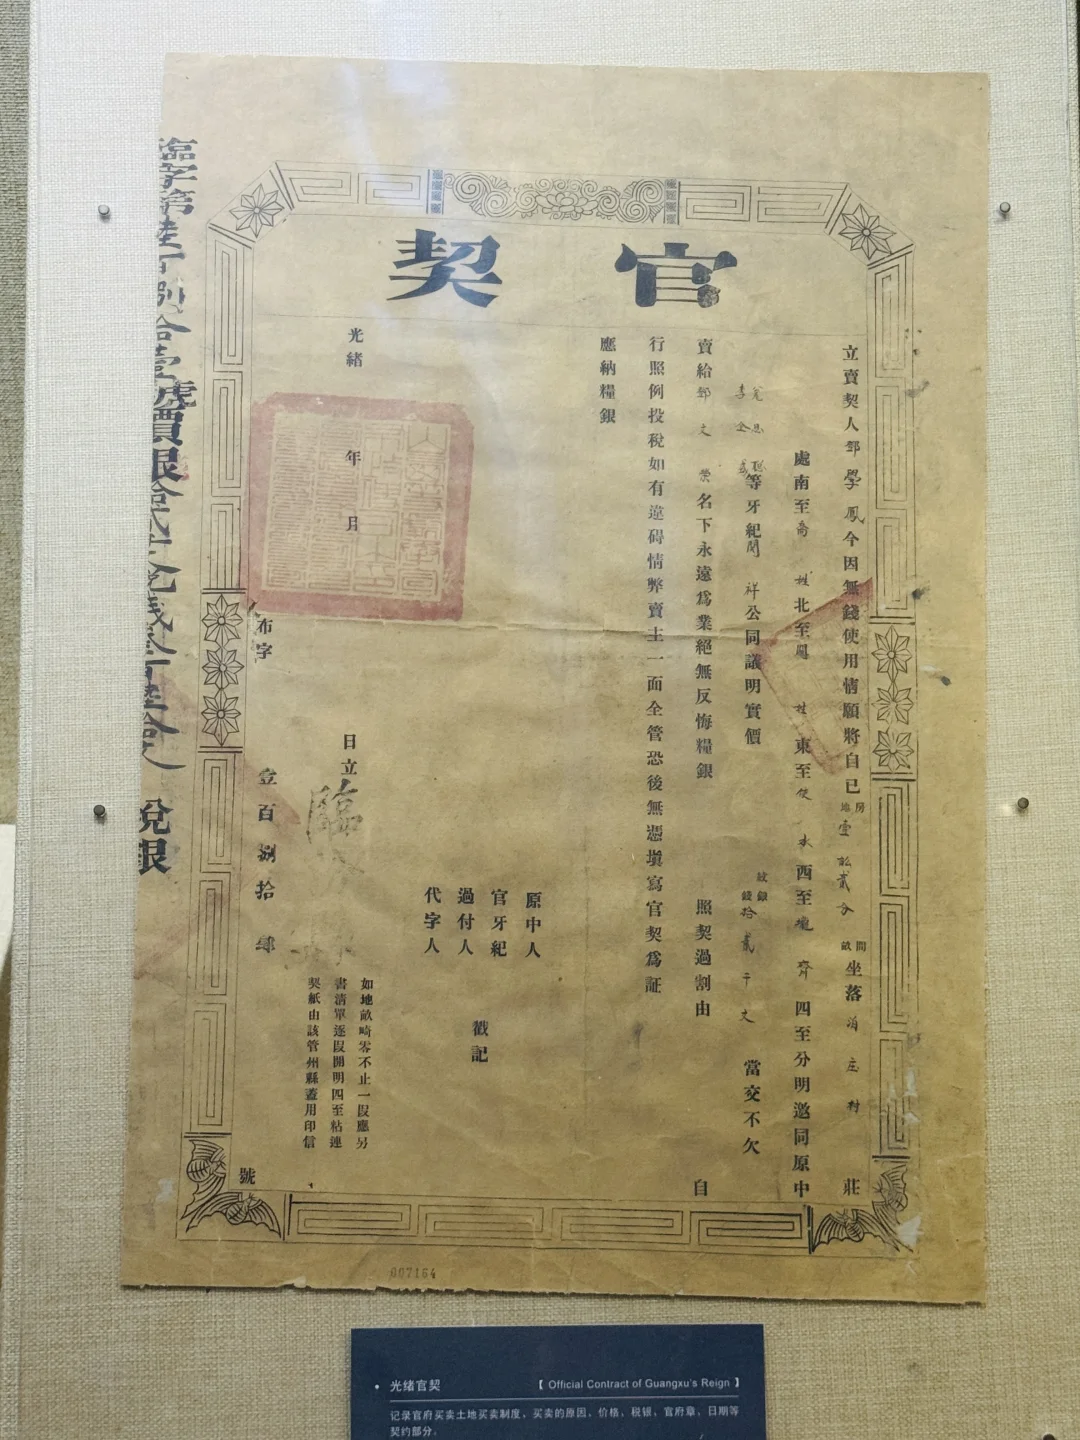 官契
立賣契人鄧學鳳今因無錢使用情願將自已房地壹畝貳分間畝坐落 庄村莊
處南至喬姓北至關姓東至 水西至 齊四至分明邀同原中
李全 思 等牙紀閻祥公同議明實價紋銀錢拾貳千文當交不欠
賣給鄧文榮名下永遠爲業絕無反悔糧銀照契過割由自
行照例投稅如有違碍情弊賣主一面全管恐後無憑塡寫官契爲証
應納糧銀
原中人
官牙紀戳記
過付人
代字人
光緒年月日立
如地畝畸零不止一段應另
書清單逐段開明四至粘連
契紙由該管州縣蓋用印信
布字壹百捌拾肆號
臨字第陸百捌拾壹號價銀 稅銀
007164
• 光绪官契
【 Official Contract of Guangxu's Reign 】
记录官府买卖土地买卖制度，买卖的原因、价格、税银、官府章、日期等
契约部分。